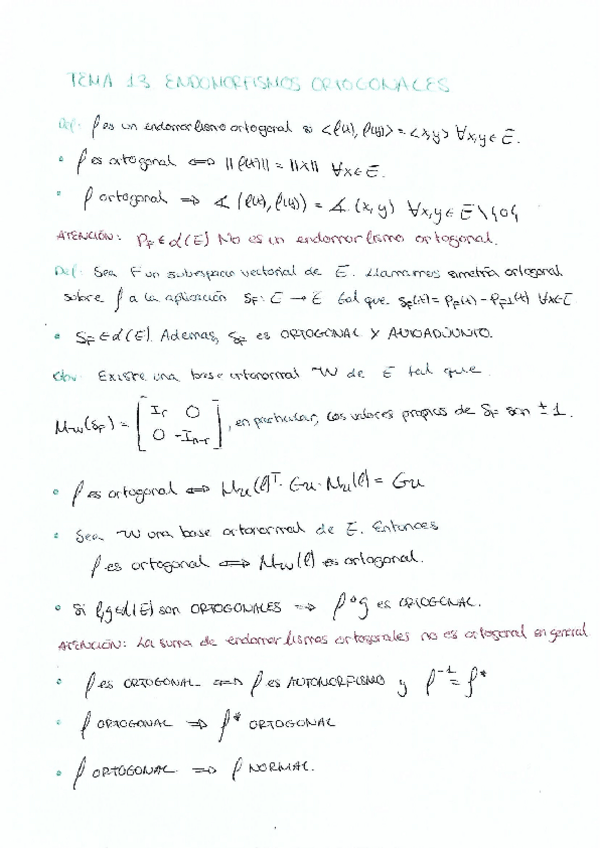 TEMA 13 ENDOMORFISMOS ORTOGONALES
Def: f es un endomorfismo ortogonal si <f(x), f(y)> = <x,y> ∀x,y ∈ E.
• f es ortogonal ⟺ ||f(x)|| = ||x|| ∀x ∈ E.
• f ortogonal ⟹ ∡ (f(x), f(y)) = ∡ (x, y) ∀x,y ∈ E\{0}
ATENCIÓN: P_F ∈ L(E) No es un endomorfismo ortogonal.
Def: Sea F un subespacio vectorial de E. Llamamos simetría ortogonal
sobre F a la aplicación S_F: E → E tal que S_F(x) = P_F(x) - P_F⊥(x) ∀x∈E
• S_F ∈ L(E). Ademas, S_F es ORTOGONAL Y AUTOADJUNTO.
Existe una base ortonormal W de E tal que
M_W(S_F) = [ I_r 0 ; 0 -I_n-r ], en particular, los valores propios de S_F son ± 1.
• f es ortogonal ⟺ M_U(f)^T · G_U · M_U(f) = G_U
• Sea W una base ortonormal de E. Entonces
f es ortogonal ⟺ M_W(f) es ortogonal.
• Si f,g ∈ L(E) son ORTOGONALES ⟹ f∘g es ORTOGONAL.
ATENCIÓN: La suma de endomorfismos ortogonales no es ortogonal en general
• f es ORTOGONAL ⟺ f es AUTOMORFISMO y f^-1 = f*
• f ORTOGONAL ⟹ f* ORTOGONAL
• f ORTOGONAL ⟹ f NORMAL.